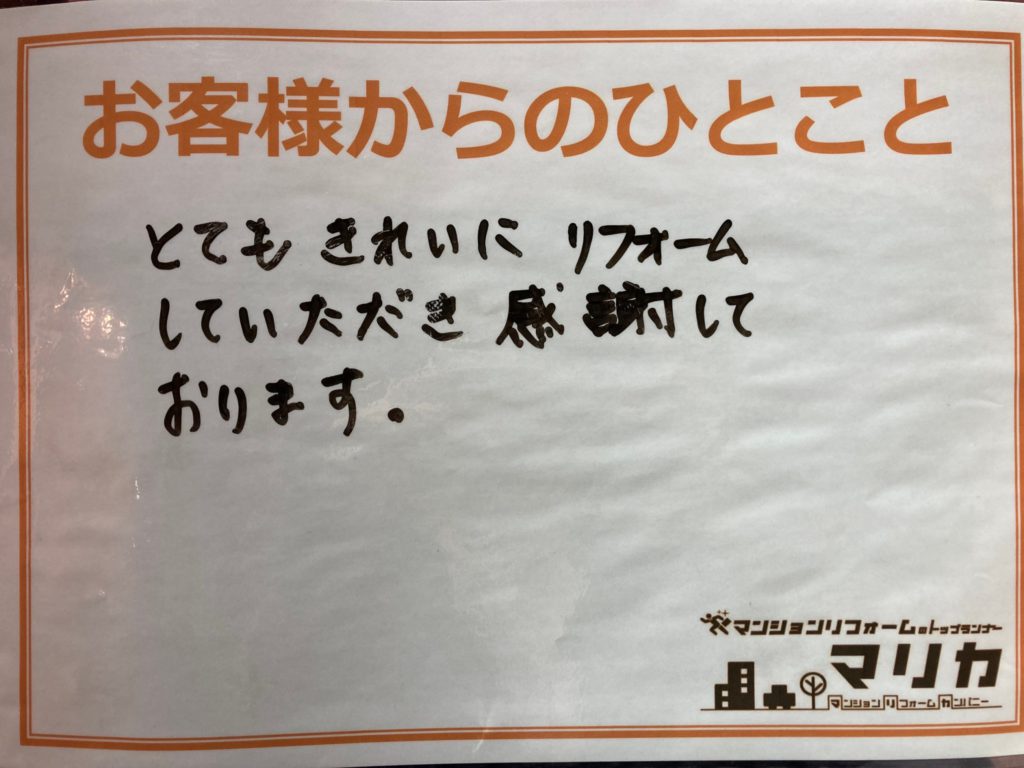 お客様からのひとこと
とても きれいに リフォーム
していただき 感謝して
おります。
マンションリフォームのトップランナー
マリカ
マンションリフォームカンパニー